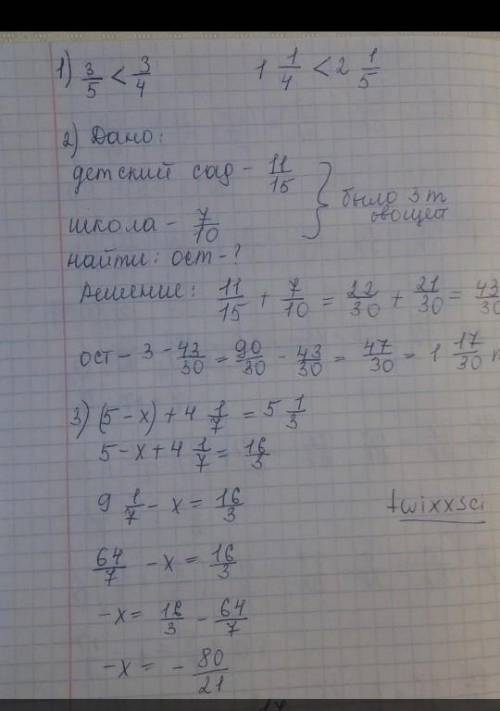 1) 3/5 < 3/4    1 1/4 < 2 1/5
2) Дано:
детский сад - 11/15 } было 3 т
овощей
школа - 7/10
найти: ост - ?
Решение: 11/15 + 7/10 = 22/30 + 21/30 = 43/30
ост - 3 - 43/30 = 90/30 - 43/30 = 47/30 = 1 17/30
3) (5 - x) + 4 1/7 = 5 1/3
5 - x + 4 1/7 = 16/3
9 1/7 - x = 16/3
twixxsci
64/7 - x = 16/3
-x = 16/3 - 64/7
-x = - 80/21